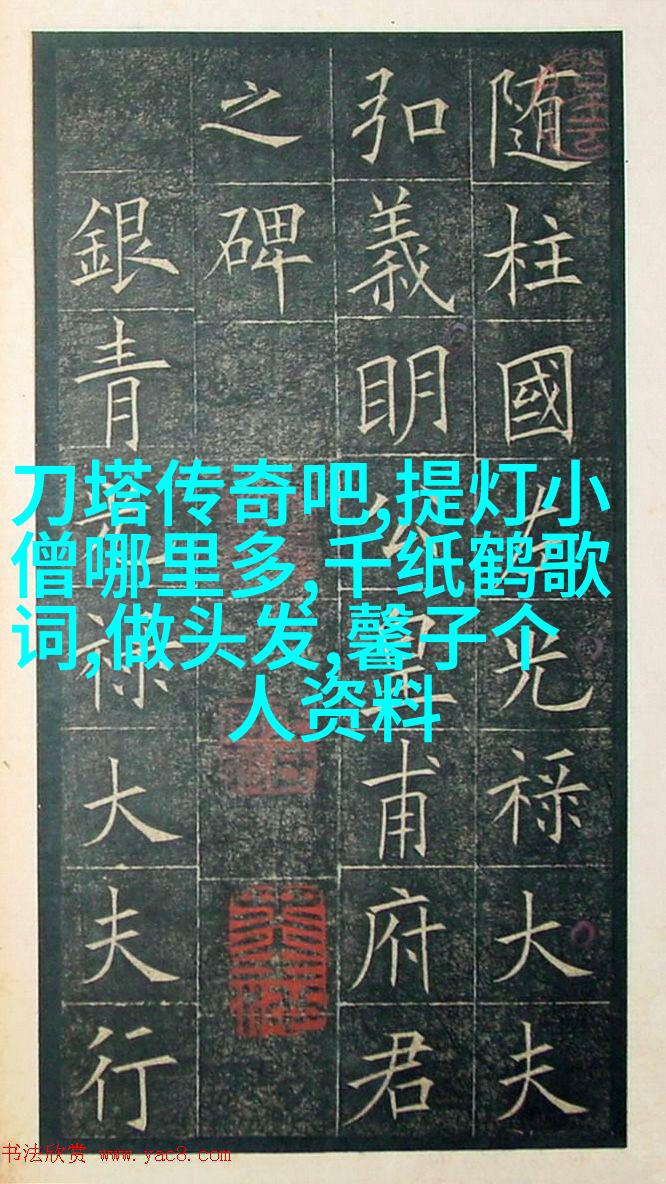 随柱國左光祿大夫
弘義明公皇甫府君
之碑
銀青光祿大夫行
刀塔传奇吧,提灯小
僧哪里多,千纸鹤歌
词,做头发,馨子个
人资料
书法欣赏 www.yac8.com